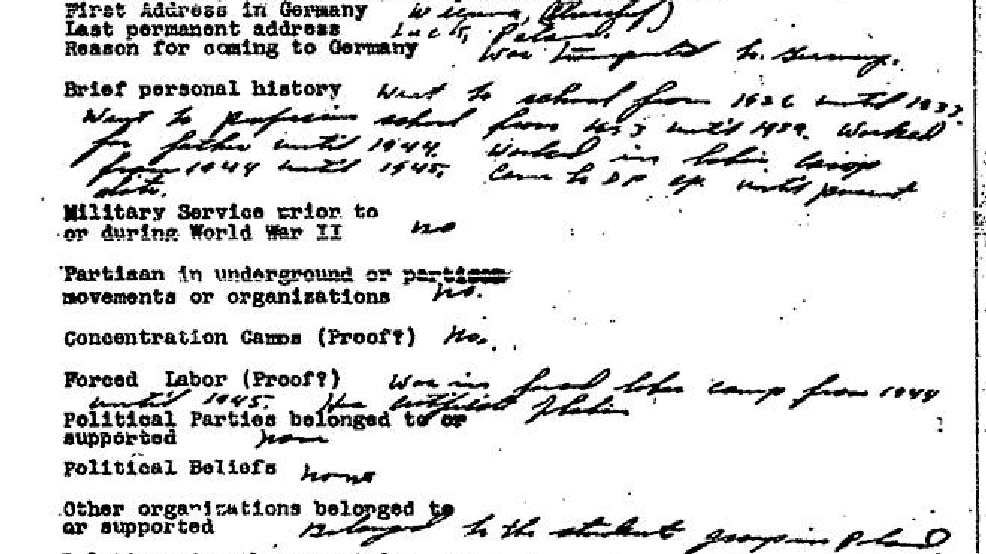 First Address in Germany Vienna,
Last permanent address Luck, Poland.
Reason for coming to Germany Was transported to Germany.
Brief personal history Went to school from 1926 until 1933.
Went to profession school from 1933 until 1939. Worked
for father until 1944. Worked in labor camp
from 1944 until 1945. Came to DP cp. until present
date.
Military Service prior to
or during World War II no
Partisan in underground or partisan
movements or organizations no.
Concentration Camps (Proof?) No.
Forced Labor (Proof?) Was in forced labor camp from 1944
until 1945. Has
Political Parties belonged to or
supported none
Political Beliefs none
Other organizations belonged to
or supported Belonged to the student group in Poland